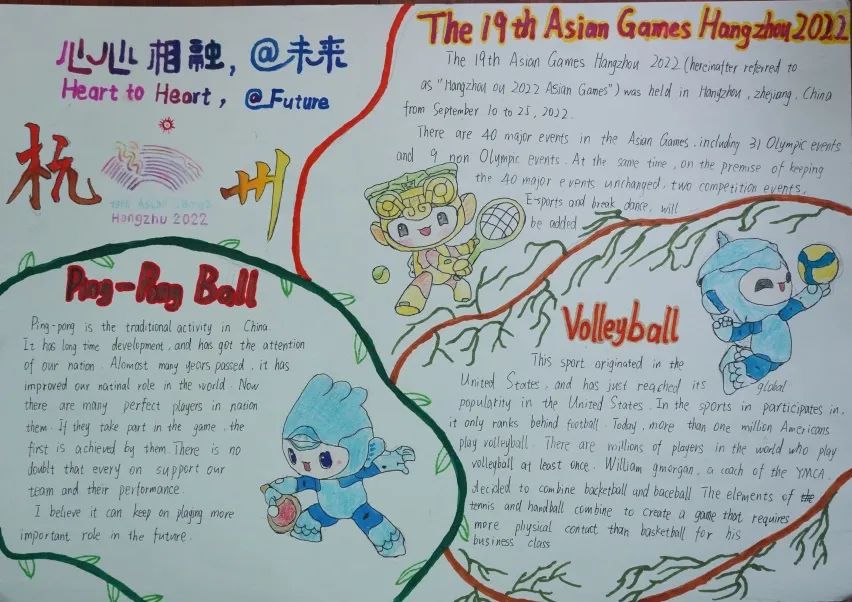 心心相融，@未来
Heart to Heart, @_Future
杭州
19th Asian Games
Hangzhu 2022
The 19th Asian Games Hangzhou 2022
The 19th Asian Games Hangzhou 2022 (hereinafter referred to
as "Hangzhou ou 2022 Asian Games") was held in Hangzhou, zhejiang, China
from September 10 to 25, 2022.
There are 40 major events in the Asian Games, including 31 Olympic events
and 9 non Olympic events. At the same time, on the premise of keeping
the 40 major events unchanged, two competition events,
E-sports and break dance, will
be added
Ping-Pong Ball
Ping-pong is the traditional activity in China.
It has long time development, and has got the attention
of our nation. Alomost many years passed, it has
improved our natinal role in the world. Now
there are many perfect players in nation
them. If they take part in the game, the
first is achieved by them. There is no
doublt that every on support our
team and their performance.
I believe it can keep on playing more
important role in the future.
Volleyball
This sport originated in the
United States, and has just reached its global
popularity in the United States. In the sports in participates in,
it only ranks behind football. Today, more than one million Americans
play volleyball. There are millions of players in the world who play
volleyball at least once. William gmorgan, a coach of the YMCA,
decided to combine backetball and baceball The elements of
tennis and handball combine to create a game that requires
more physical contact than basketball for his
business class